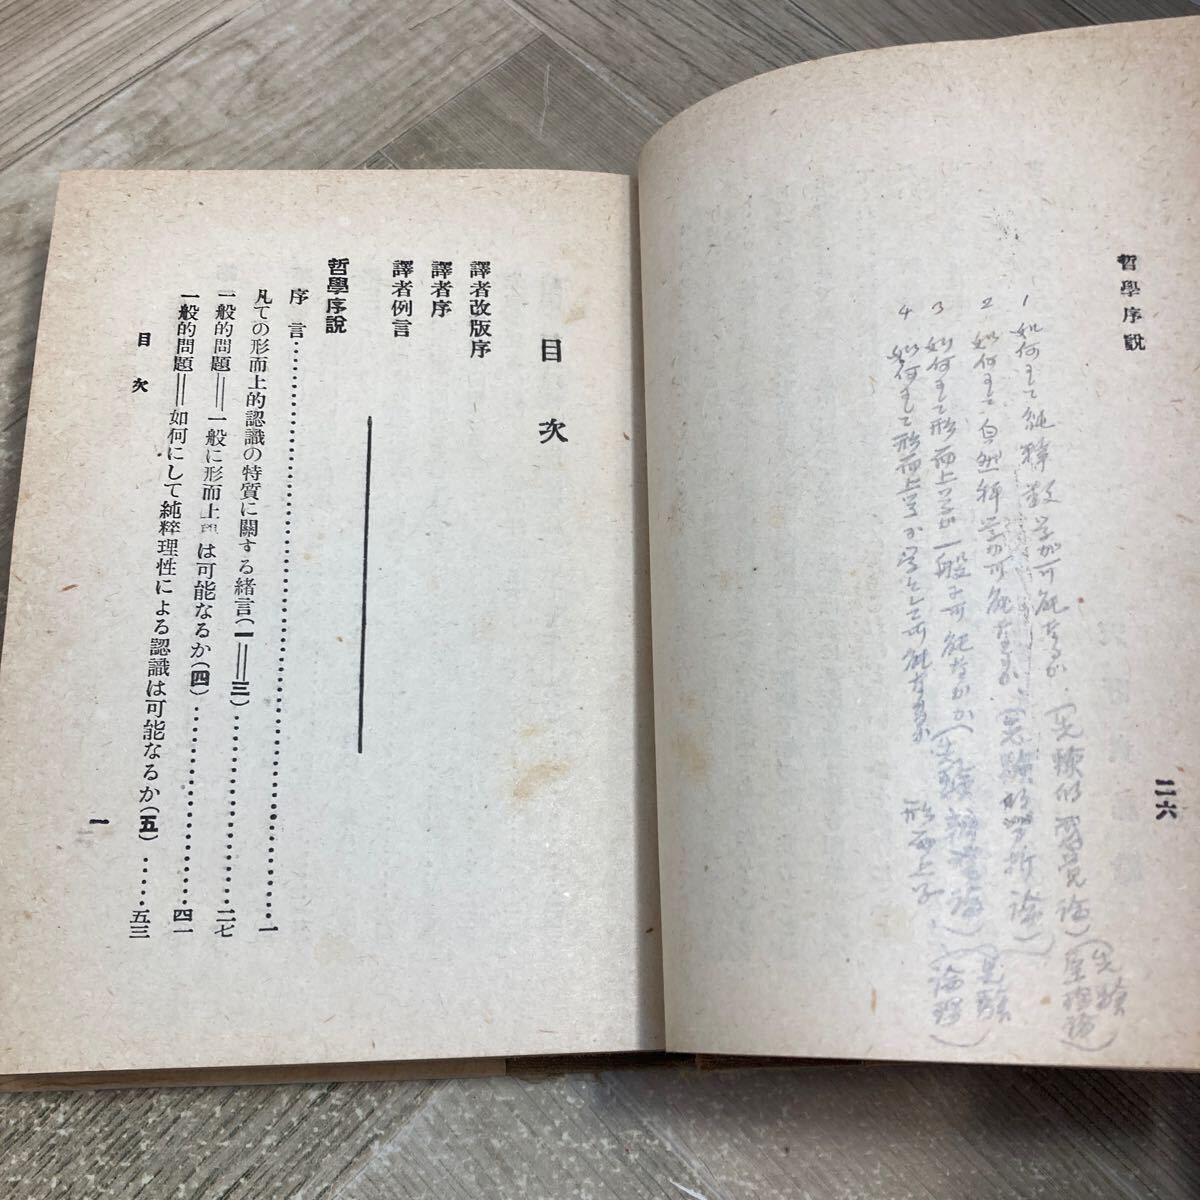 哲學序説
二六
1 如何にして純粹数学が可能なるか (先験的感覚論)
2 如何にして自然科学が可能なるか (先験的分析論)
3 如何にして形而上学が一般に可能なるか (先験辨証論)
4 如何にして形而上学が学として可能なるか 形而上学
目次
譯者改版序
譯者序
譯者例言
哲學序説
序言……一
凡ての形而上的認識の特質に關する緒言(一──三)……二七
一般的問題══一般に形而上 は可能なるか(四)……四一
一般的問題══如何にして純粹理性による認識は可能なるか(五)……五三
目次
一